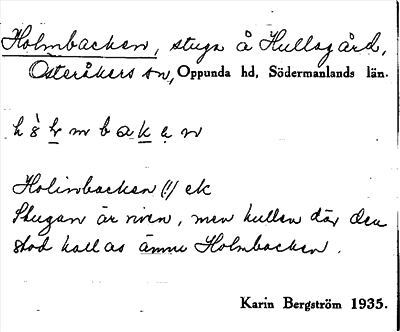 Holmbacken, stuga å Hullsgård,
Österåkers sn, Oppunda hd, Södermanlands län.
hò̀lmbaken
Holmbacken (/) ek
Stugan är riven, men kullen där den
stod kallas ännu Holmbacken.
Karin Bergström 1935.